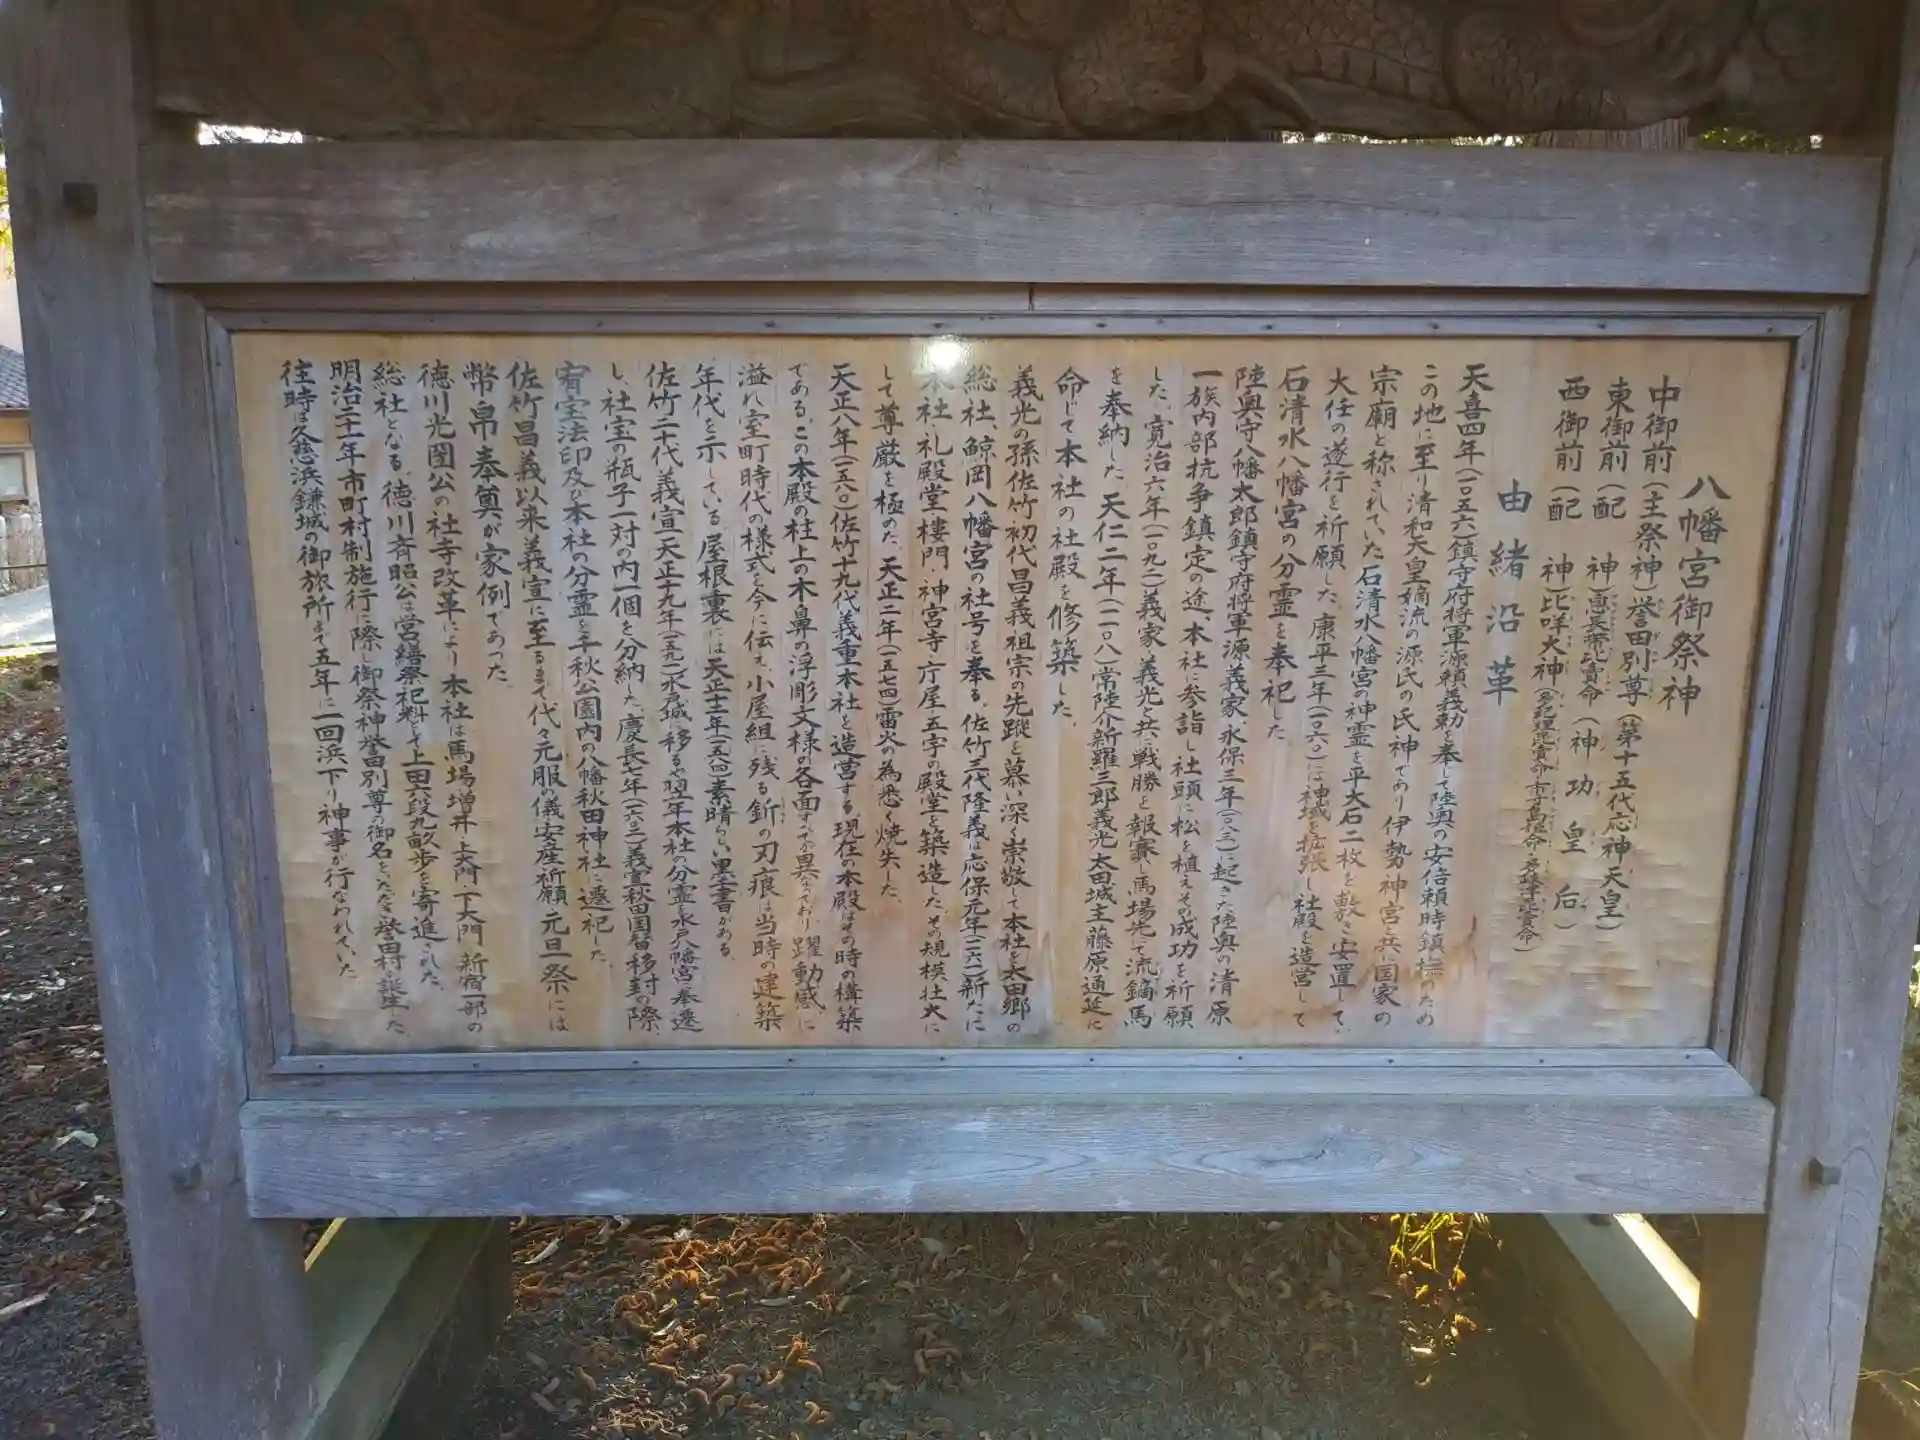 八幡宮御祭神
中御前(主祭神)誉田別尊(第十五代応神天皇)
東御前(配 神)息長帯比賣命(神功皇后)
西御前(配 神)比咩大神(多紀理毘賣命 市寸島比命 多岐津比賣命)
由緒沿革
天喜四年(一〇五六)鎮守府将軍源頼義勅を奉して陸奥の安倍頼時鎮撫のため
この地に至り清和天皇嫡流の源氏の氏神であり伊勢神宮と共に国家の
宗廟と称されていた石清水八幡宮の神霊を平大石二枚を敷き安置して、
大任の遂行を祈願した。康平三年(一〇六〇)には神域を拡張し社殿を造営して
石清水八幡宮の分霊を奉祀した
陸奥守八幡太郎鎮守府将軍源義家、永保三年(一〇八三)に起きた陸奥の清原
一族内部抗争鎮定の途、本社に参詣し社頭に松を植えその成功を祈願
した。寛治六年(一〇九二)義家、義光と共に戦勝を報賽し馬場先にて流鏑馬
を奉納した。天仁二年(一一〇八)常陸介新羅三郎義光太田城主藤原通延に
命じて本社の社殿を修築した。
義光の孫佐竹初代昌義祖宗の先蹤を慕い深く崇敬して本社を太田郷の
総社、鯨岡八幡宮の社号を奉る。佐竹三代隆義は応保元年(一一六一)新たに
本社、礼殿堂楼門・神宮寺・庁屋五宇の殿堂を築造した。その規模壮大に
して尊厳を極めた。天正二年(一五七四)雷火の為悉く焼失した。
天正八年(一五八〇)佐竹十九代義重本社を造営する現在の本殿はその時の構築
である。この本殿の柱上の木鼻の浮彫文様の各面すべてが異なっており躍動感に
溢れ室町時代の様式を今に伝え、小屋組に残る釿の刃痕は当時の建築
年代を示している。屋根裏には天正十二年(一五八四)素晴らしい墨書がある。
佐竹二十代義宣天正十九年(一五九一)水戸城に移るや翌年本社の分霊を水戸八幡宮に奉遷
し、社宝の瓶子一対の内一個を分納した。慶長七年(一六〇二)義宣秋田国替移封の際、
宥宝法印及び本社の分霊を千秋公園内の八幡秋田神社に遷祀した。
佐竹昌義以来義宣に至るまで代々元服の儀・安産祈願・元旦祭には
幣帛奉奠が家例であった。
徳川光圀公の社寺改革により本社は馬場増井上大門・下大門・新宿一部の
総社となる。徳川斉昭公は営繕祭祀料として上田六段九畝歩を寄進された。
明治二十一年市町村制施行に際し御祭神誉田別尊の御名をいただき誉田村は誕生した。
往時は久慈浜鎌城の御旅所まで五年に一回浜下り神事が行なわれていた。